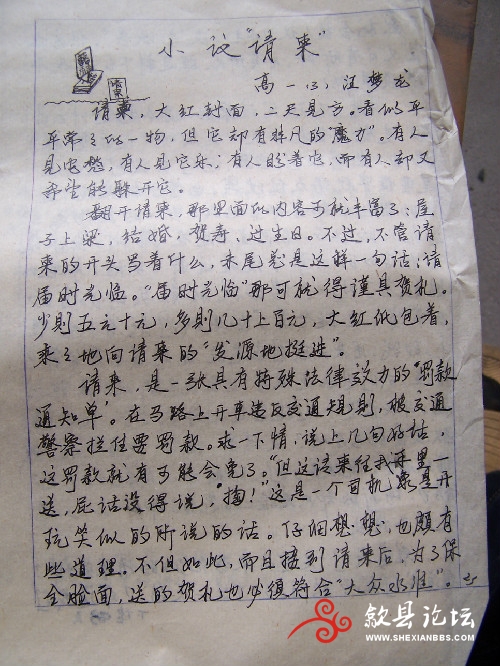 小议"请柬"
高一(3) 汪梦龙
请柬
请柬，大红封面，二尺见方。看似平
平常常的一物，但它却有非凡的"魔力"。有人
见它愁，有人见它乐；有人盼着它，而有人却又
希望能躲开它。
翻开请柬，那里面的内容可就丰富了：屋
子上梁，结婚，贺寿，过生日。不过，不管请
柬的开头写着什么，末尾总是这样一句话：请
届时光临。"届时光临"那可就得谨具贺礼。
少则五元十元，多则几十上百元，大红纸包着，
乘乘地向请柬的"发源地挺进"。
请柬，是一张具有特殊法律效力的"罚款
通知单"。在马路上开车违反交通规则，被交通
警察拦住要罚款。求一下情，说上几句好话，
这罚款就有可能会免了。"但这请柬往我手里一
送，屁话没得说，掏！"这是一个司机像是开
玩笑似的所说的话。仔细想想，也颇有
些道理。不但如此，而且接到请柬后，为了保
全脸面，送的贺礼也必须符合"大众水准"。
歙县论坛
WWW.SHEXIANBBS.COM